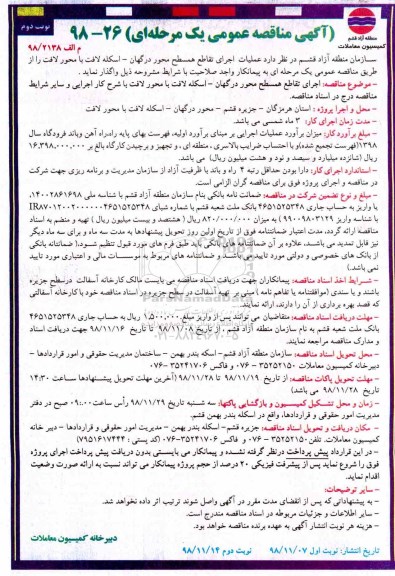 نوبت دوم
(آگهی مناقصه عمومی یک مرحله‌ای) ۲۶- ۹۸
م الف ۹۸/۲۱۳۸
منطقه آزاد قشم
کمیسیون معاملات
سازمان منطقه آزاد قشم در نظر دارد عملیات اجرای تقاطع همسطح محور درگهان – اسکله لافت با محور لافت را از
طریق مناقصه عمومی یک مرحله ای به پیمانکار واجد صلاحیت با شرایط مشروحه ذیل واگذار نماید .
– موضوع مناقصه: اجرای تقاطع همسطح محور درگهان – اسکله لافت با محور لافت با شرح کار اجرایی و سایر شرایط
مناقصه درج در اسناد مناقصه.
– محل و اجرا پروژه : استان هرمزگان – جزیره قشم – محور درگهان – اسکله لافت با محور لافت
– مدت زمان اجرای کار: ۳ ماه شمسی می باشد.
– مبلغ برآورد کار: میزان برآورد عملیات اجرایی بر مبنای برآورد اولیه، فهرست بهای پایه راه‌راه آهن وباند فرودگاه سال
۱۳۹۸(فهرست تجمیع شده)و با احتساب ضرایب بالاسری ، منطقه ای ، و تجهیز و برچیدن کارگاه بالغ بر ۱۶,۳۹۸,۰۰۰,۰۰۰
ریال (شانزده میلیارد و سیصد و نود و هشت میلیون ریال) می باشد.
– استاندارد اجرای کار: دارا بودن حداقل رتبه ۴ راه و باند با ظرفیت آزاد از سازمان مدیریت و برنامه ریزی جهت شرکت
در مناقصه و اجرای پروژه فوق برای مناقصه گران الزامی است.
– مبلغ و نوع تضمین شرکت در مناقصه: ضمانت نامه بانکی بنام سازمان منطقه آزاد قشم با شناسه ملی ۱۴۰۰۲۸۶۱۶۹۸،
یا واریز به حساب جاری ۴۶۵۱۵۲۵۳۴۸ بانک ملت شعبه قشم با شماره شبای
با شناسه واریز ۹۹۰۰۹۸۰۳۱۲۹ ) به میزان ۸۲۰/۰۰۰/۰۰۰ ریال ( هشتصد و بیست میلیون ریال ) تهیه و منضم به اسناد
مناقصه ارائه گردد، مدت اعتبار ضمانتنامه فوق از تاریخ اولین روز تحویل پیشنهادها به مدت سه ماه و برای سه ماه دیگر
نیز قابل تمدید می باشد، علاوه بر آن ضمانتنامه های بانکی باید طبق فرم های مورد قبول تنظیم شود.( ضمانتنامه بانکی
از بانک های خصوصی و دولتی مورد تایید می باشد و ضمانتنامه های مربوط به موسسات مالی و اعتباری مورد تایید
نمی باشد.)
– شرایط اخذ اسناد مناقصه: پیمانکاران جهت دریافت اسناد مناقصه می بایست مالک کارخانه آسفالت درسطح جزیره
باشند و یا سندی (موافقتنامه یا تفاهم نامه ) مبنی بر تهیه آسفالت در سطح جزیره در اسناد مناقصه خود با کارخانه آسفالتی
که قصد بهره برداری از آن را دارند، ارائه نمایند.
– مهلت دریافت اسناد مناقصه: متقاضیان می توانند پس از واریز مبلغ ۱,۵۰۰,۰۰۰ ریال به حساب جاری ۴۶۵۱۵۲۵۳۴۸
بانک ملت شعبه قشم به نام سازمان منطقه آزاد قشم ، از تاریخ ۹۸/۱۱/۰۸ تا تاریخ ۹۸/۱۱/۱۶ جهت دریافت اسناد
و مدارک مناقصه مراجعه نمایند.
– محل تحویل اسناد مناقصه: سازمان منطقه آزاد قشم– اسکه بندر بهمن – ساختمان مدیریت حقوقی و امور قراردادها –
دبیرخانه کمیسیون معاملات ۳۵۲۵۲۱۵۰ – ۰۷۶ و فاکس ۳۵۲۴۱۷۰۶ –۰۷۶
– مهلت تحویل پاکات مناقصه: از تاریخ ۹۸/۱۱/۱۹ تا ۹۸/۱۱/۲۸(آخرین مهلت تحویل پیشنهادها ساعت ۱۴:۳۰
تاریخ ۹۸/۱۱/۲۸ می باشد)
– زمان و محل تشکیل کمیسیون و بازگشایی پاکتها: سه شنبه تاریخ ۹۸/۱۱/۲۹ رأس ساعت ۰۹:۰۰ صبح در دفتر
مدیریت امور حقوقی و قراردادها، واقع در اسکله بندر بهمن قشم.
– مکان دریافت و تحویل اسناد مناقصه: جزیره قشم– اسکله بندر بهمن – مدیریت امور حقوقی و قراردادها – دبیر خانه
کمیسیون معاملات. تلفن۳۵۲۵۲۱۵۰ – ۰۷۶ و فاکس ۳۵۲۴۱۷۰۶–۰۷۶ (کد پستی : ۷۹۵۱۶۱۷۴۴۴)
– در این قرارداد پیش پرداخت درنظر گرفته نشده و پیمانکار می بایستی بدون دریافت پیش پرداخت اجرای پروژه
فوق را شروع نماید پس از پیشرفت فیزیکی ۲۰ درصد از حجم پروژه پیمانکار می تواند نسبت به ارائه صورت وضعیت
اقدام نماید.
– سایر توضیحات:
– به پیشنهاداتی که پس از انقضای مدت مقرر در آگهی واصل شوند ترتیب اثر داده نخواهد شد.
– سایر اطلاعات و جزئیات مربوطه در اسناد مناقصه مندرج است.
– هزینه هر نوبت انتشار آگهی به عهده برنده مناقصه خواهد بود.
دبیرخانه کمیسیون معاملات
تاریخ انتشار: نوبت اول ۹۸/۱۱/۰۷ نوبت دوم ۹۸/۱۱/۱۴